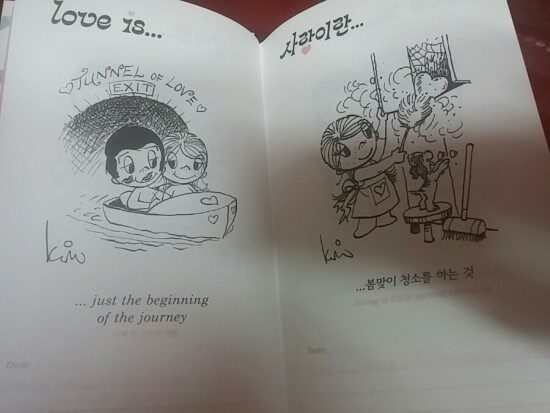 love is...
TUNNEL OF LOVE
EXIT
Kim
... just the beginning
of the journey
Date
사랑이란...
Kim
...봄맞이 청소를 하는 것
Date